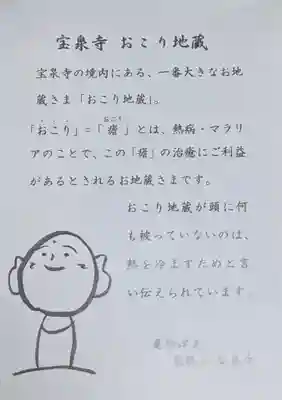 宝泉寺 おこり地蔵
宝泉寺の境内にある、一番大きなお地
蔵さま「おこり地蔵」。
おこり
「おこり」=「瘧」とは、熱病・マラリ
アのことで、この「瘧」の治癒にご利益
があるとされるお地蔵さまです。
おこり地蔵が頭に何
も被っていないのは、
熱を冷ますためと言
い伝えられています。